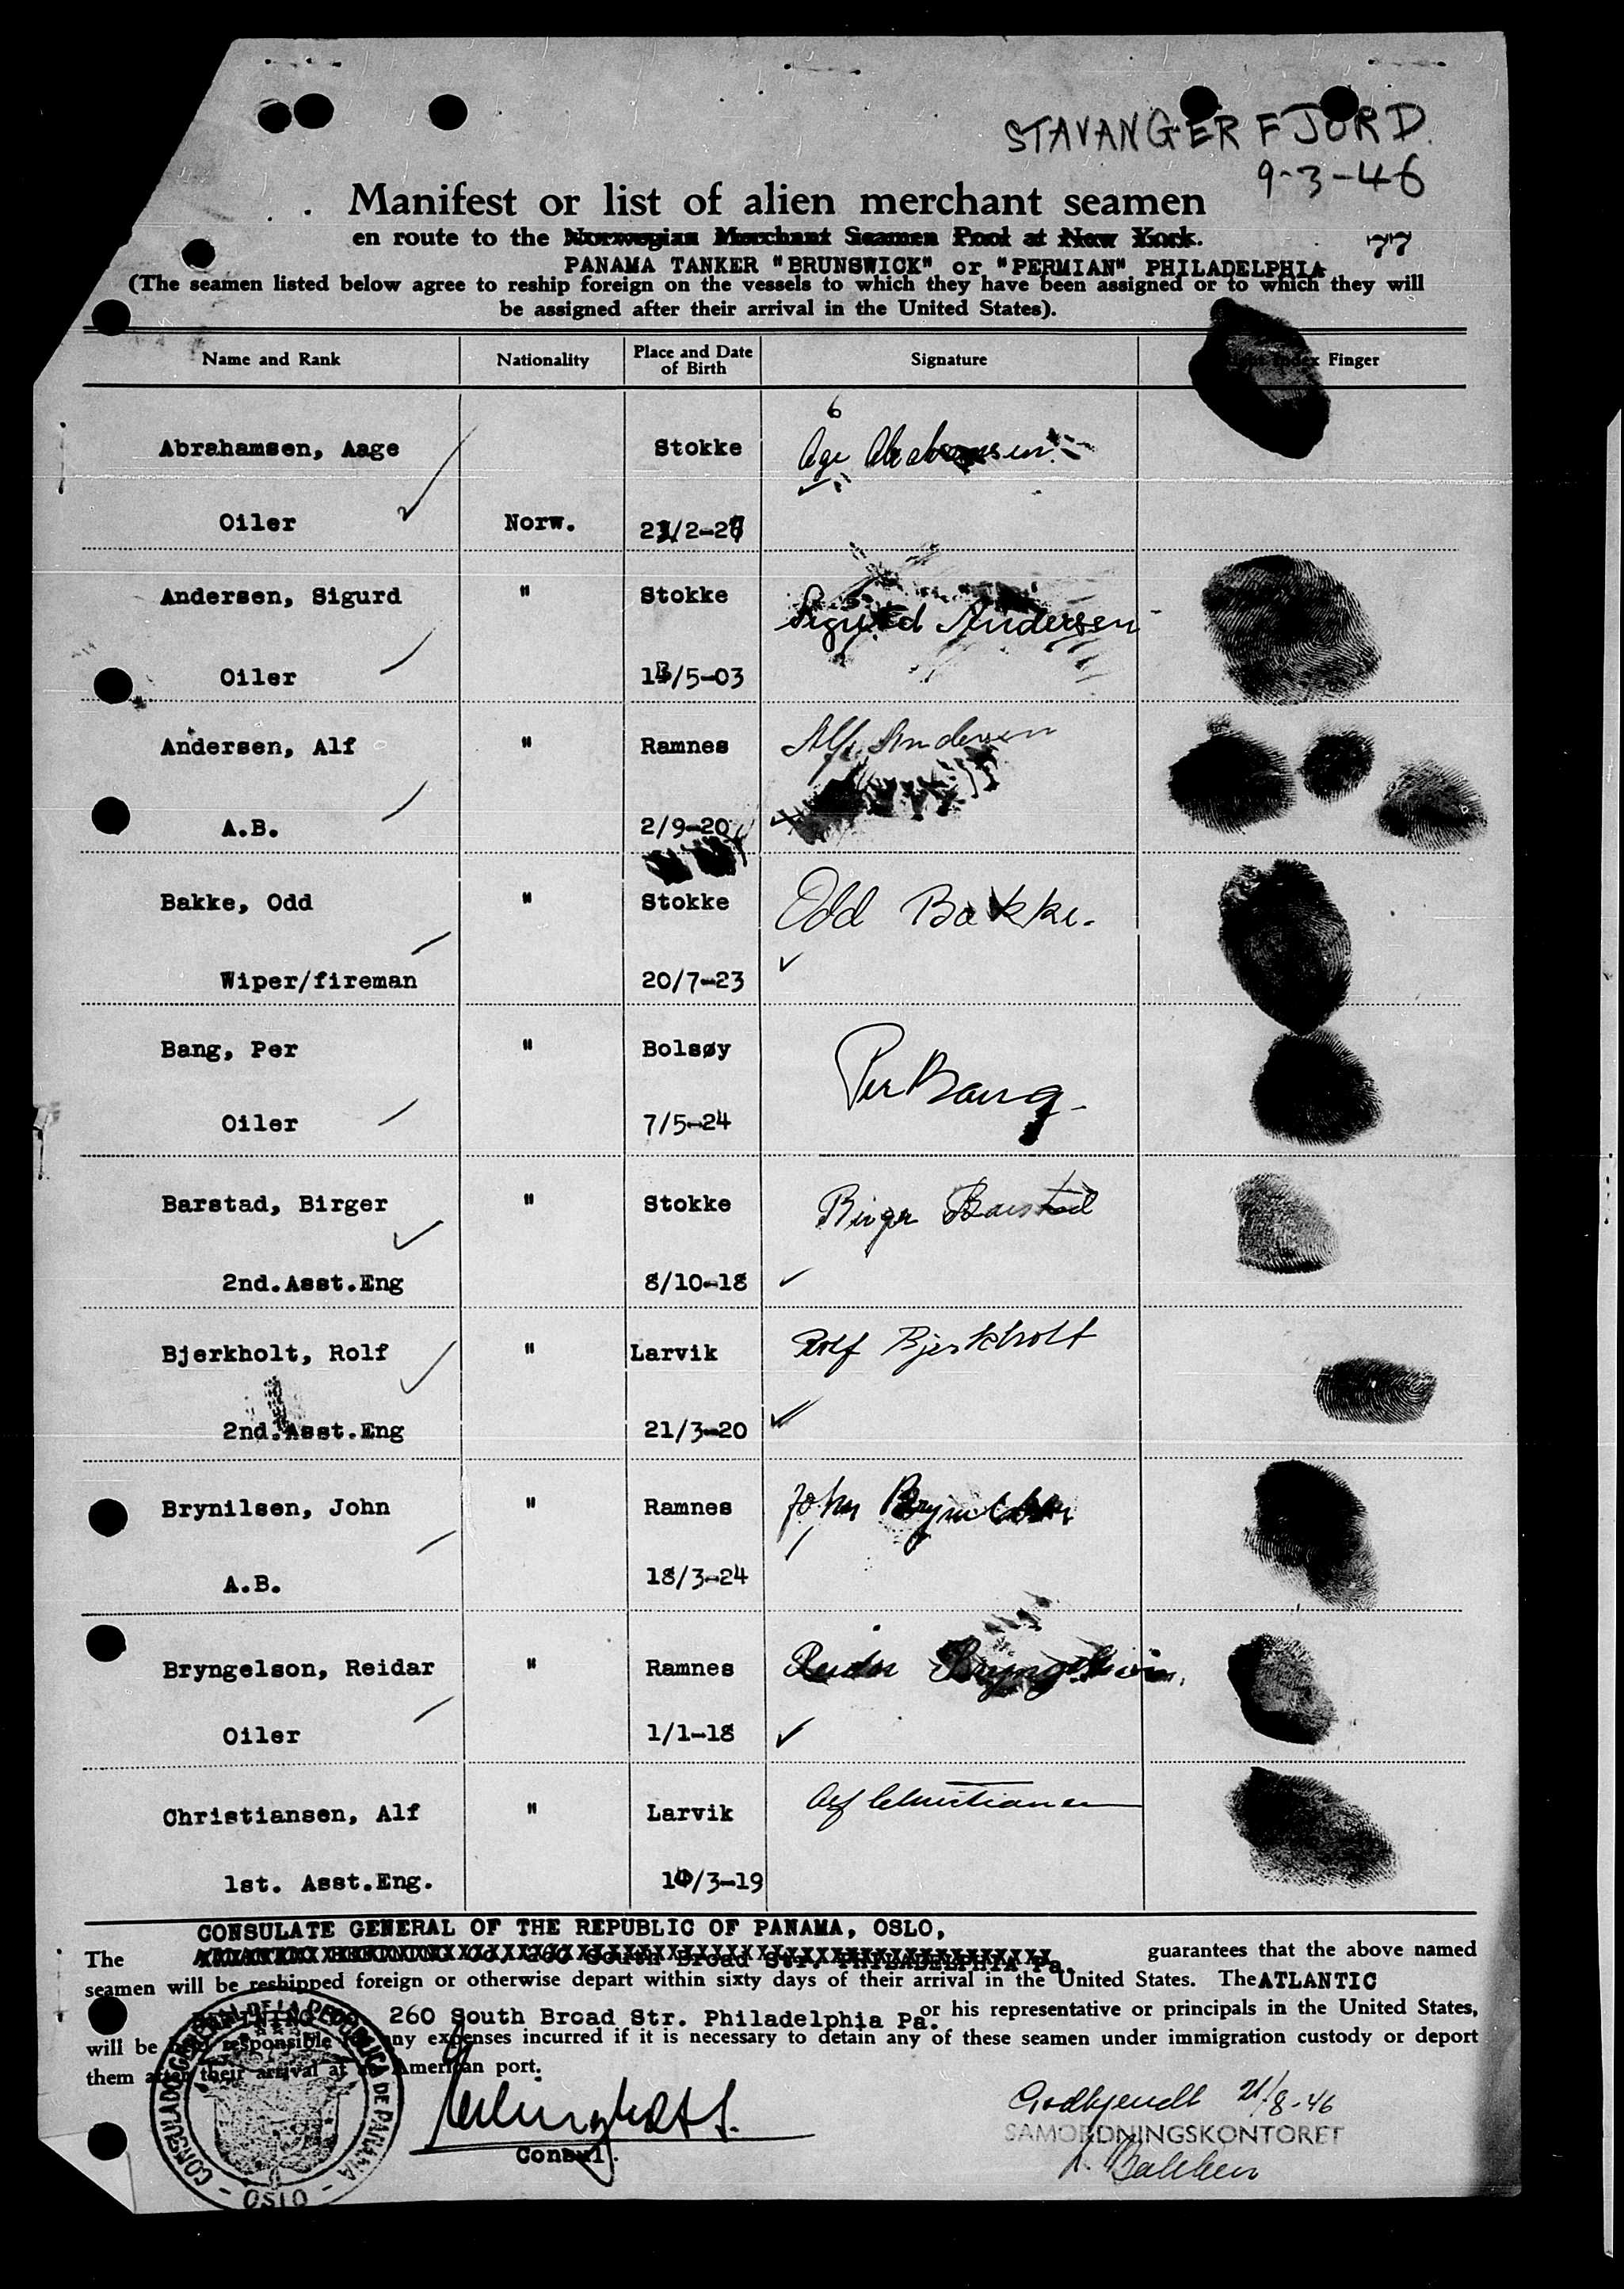 STAVANGERFJORD.
9-3-46
Manifest or list of alien merchant seamen
en route to the Norwegian Merchant Seamen Pool at New York.
77
PANAMA TANKER "BRUNSWICK" or "PERMIAN" PHILADELPHIA
(The seamen listed below agree to reship foreign on the vessels to which they have been assigned or to which they will
be assigned after their arrival in the United States).
Name and Rank Nationality Place and Date of Birth Signature Index Finger
6
Abrahamsen, Aage Stokke Åge Abrahamsen
Oiler Norw. /2-2
Andersen, Sigurd " Stokke Sigurd Andersen
Oiler /5-03
Andersen, Alf " Ramnes Alf Andersen
A.B. 2/9-20
Bakke, Odd " Stokke Odd Bakke.
Wiper/fireman 20/7-23
Bang, Per " Bolsøy Per Bang
Oiler 7/5-24
Barstad, Birger " Stokke Birger Barstad
2nd.Asst.Eng 8/10-18
Bjerkholt, Rolf " Larvik Rolf Bjerkholt
2nd.Asst.Eng 21/3-20
Brynilsen, John " Ramnes John
A.B. 18/3-24
Bryngelson, Reidar " Ramnes Reidar Bryngelson
Oiler 1/1-18
Christiansen, Alf " Larvik Alf Christiansen
1st. Asst.Eng. /3-19
CONSULATE GENERAL OF THE REPUBLIC OF PANAMA, OSLO,
The South Broad Str. PHILADELPHIA Pa. guarantees that the above named
seamen will be reshipped foreign or otherwise depart within sixty days of their arrival in the United States. The ATLANTIC
260 South Broad Str. Philadelphia Pa. or his representative or principals in the United States,
will be responsible any expenses incurred if it is necessary to detain any of these seamen under immigration custody or deport
them after their arrival at American port.
Consul.
CONSULADO GENERAL DE LA REPUBLICA DE PANAMA
- OSLO -
Godkjendt 21/8-46
SAMORDNINGSKONTORET